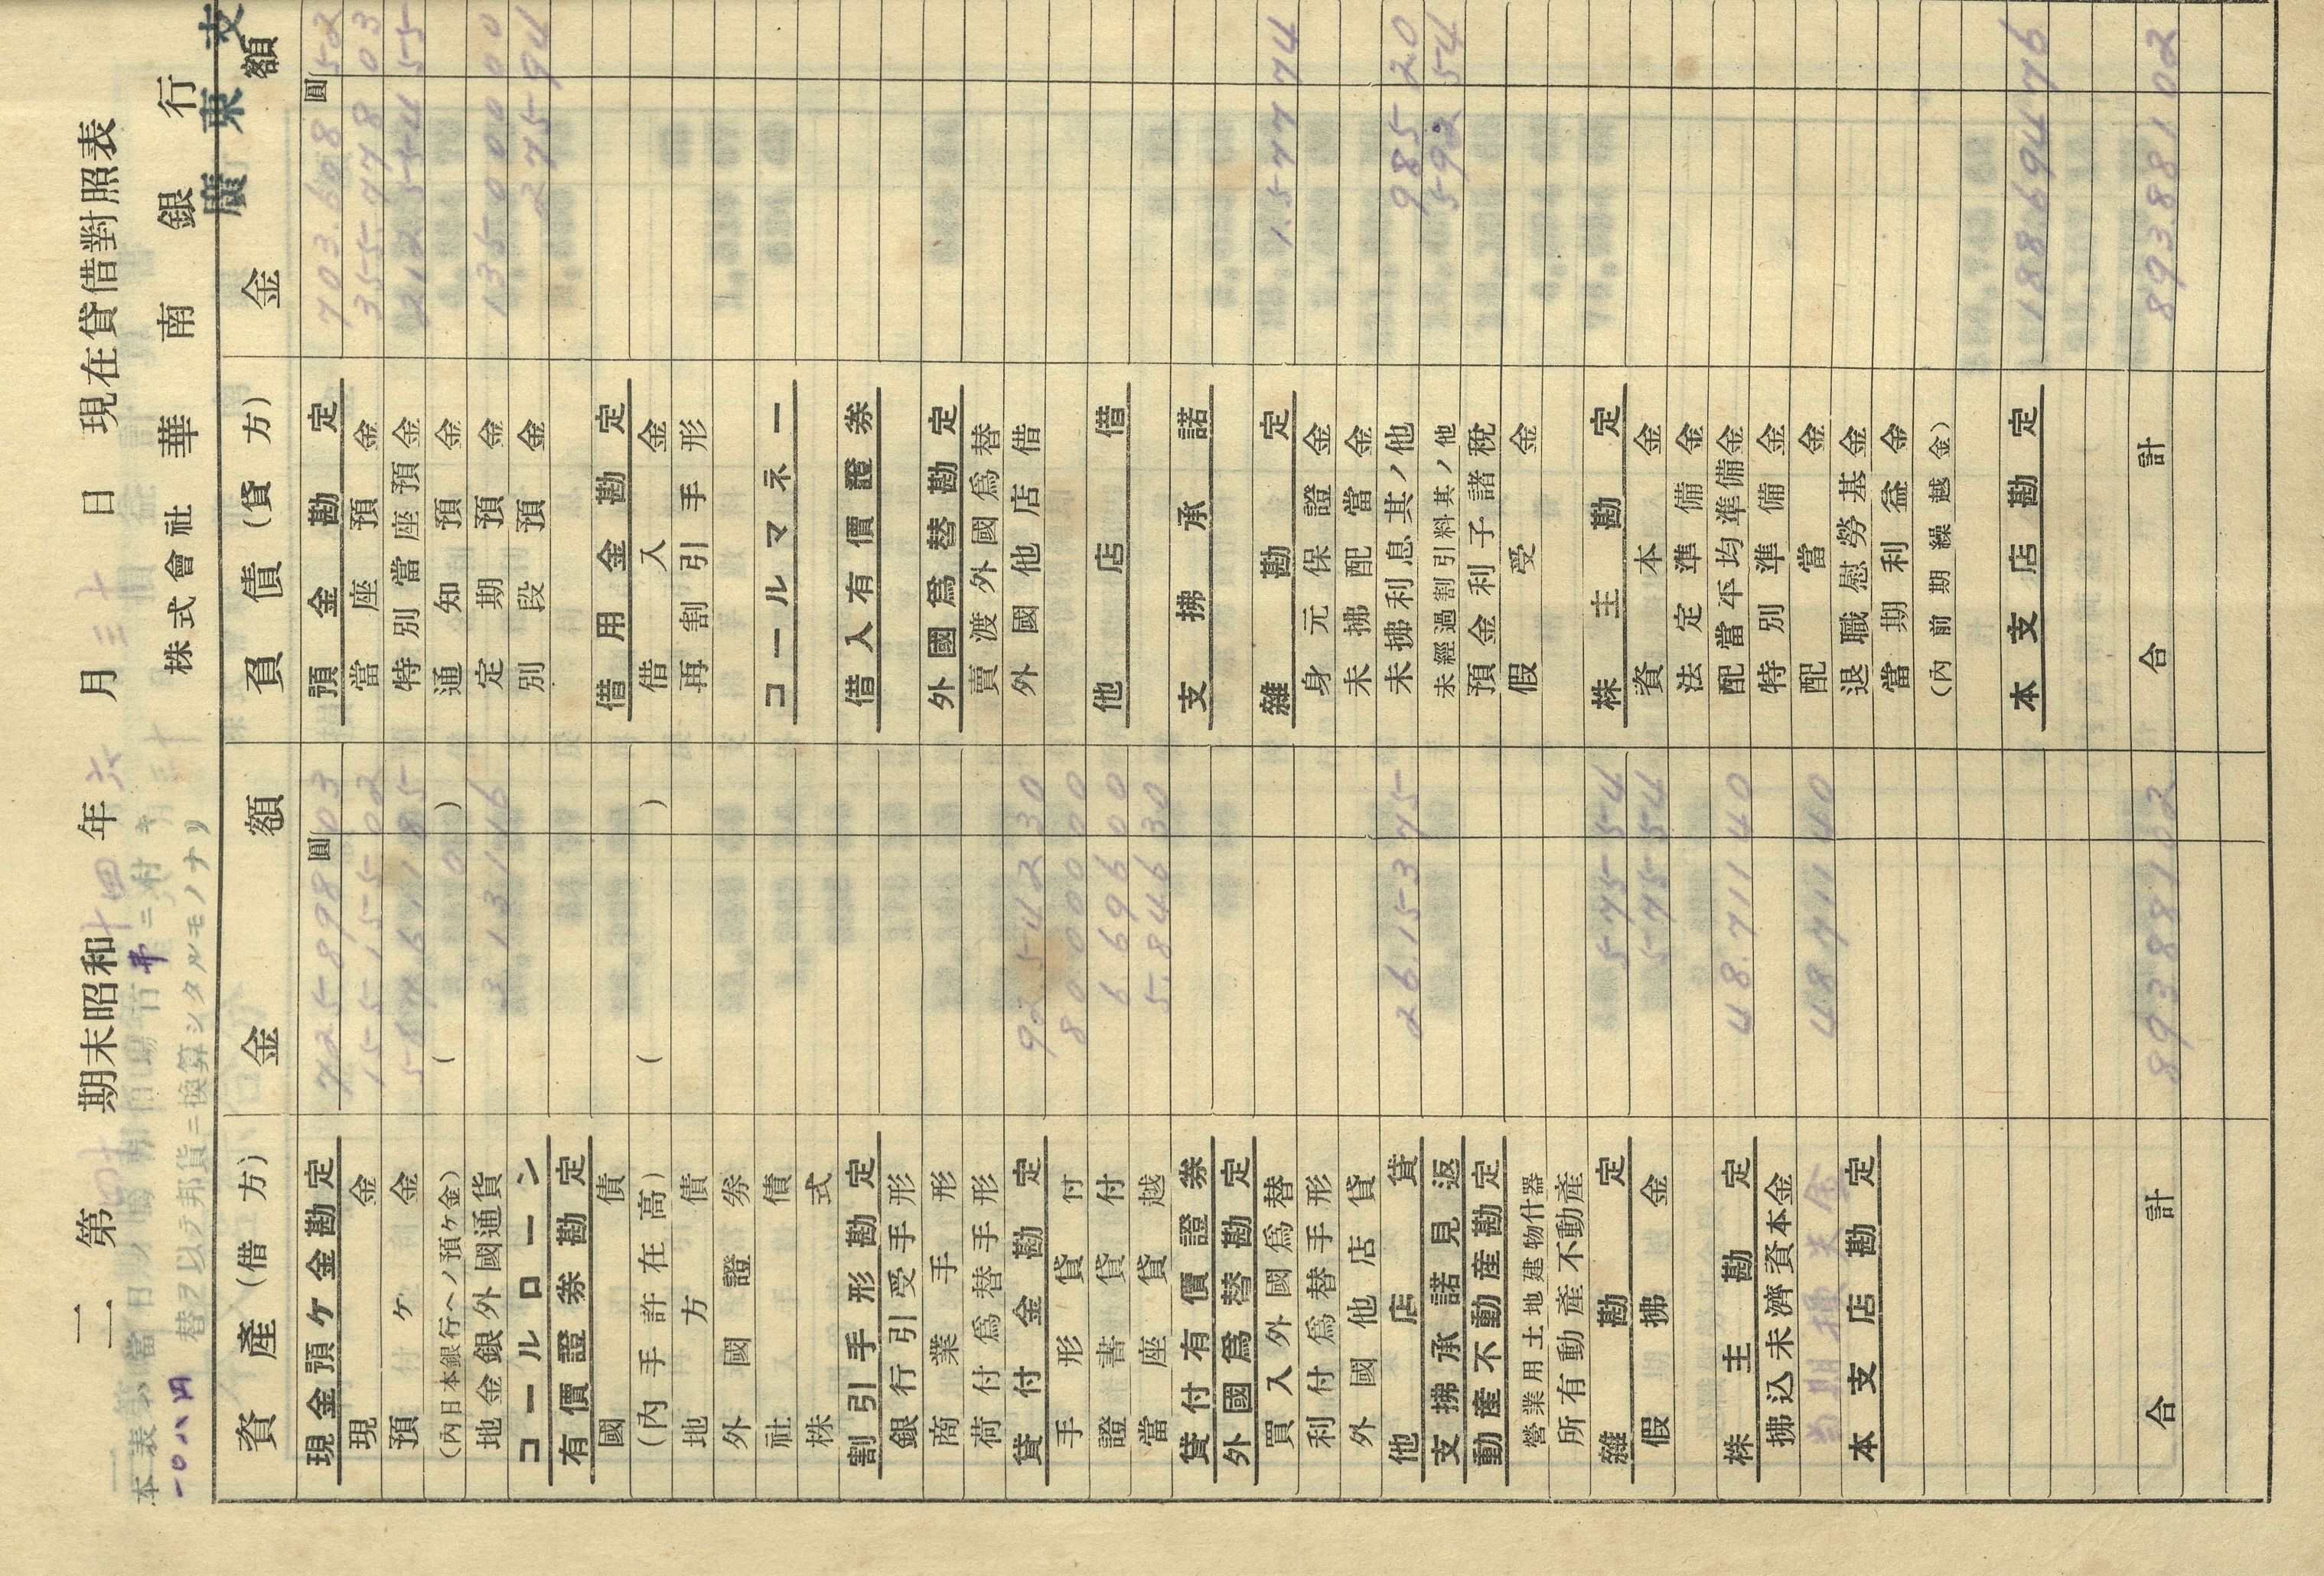 二 第四十 期末昭和十四年六月三十日 現在貸借對照表
一〇八円
替ヲ以テ邦貨ニ換算シタルモノナリ
株式會社 華南銀行
廣東支
資產(借方) 金額
圓
現金預ケ金勘定 725.898 03
現金 155.155 02
預ケ金 567.611 85
(內日本銀行へノ預ケ金) ( 0 )
地金銀外國通貨 3.131 16
コールローン
有價證券勘定
國債
(內手許在高) ( )
地方債
外國證券
社債
株式
割引手形勘定
銀行引受手形
商業手形
荷付爲替手形
貸付金勘定 92.542 30
手形貸付 80.000 00
證書貸付 6.696 00
當座貸越 5.846 30
貸付有價證券
外國爲替勘定
買入外國爲替
利付爲替手形
外國他店貸
他店貸 26.153 75
支拂承諾見返
動產不動產勘定
營業用土地建物什器
所有動產不動產
雜勘定 575 54
假拂金 575 54
株主勘定 48.711 40
拂込未濟資本金
當期損失金 48.711 40
本支店勘定
合計 893.881 02
負債(貸方) 金額
圓
預金勘定 703.608 52
當座預金 355.778 03
特別當座預金 212.554 55
通知預金
定期預金 135.000 00
別段預金 275 94
借用金勘定
借入金
再割引手形
コールマネー
借入有價證券
外國爲替勘定
賣渡外國爲替
外國他店借
他店借
支拂承諾
雜勘定 1.577 74
身元保證金
未拂配當金
未拂利息其ノ他 985 20
未經過割引料其ノ他 592 54
預金利子諸稅
假受金
株主勘定
資本金
法定準備金
配當平均準備金
特別準備金
配當金
退職慰勞基金
當期利益金
(內前期繰越金)
本支店勘定 188.694 76
合計 893.881 02